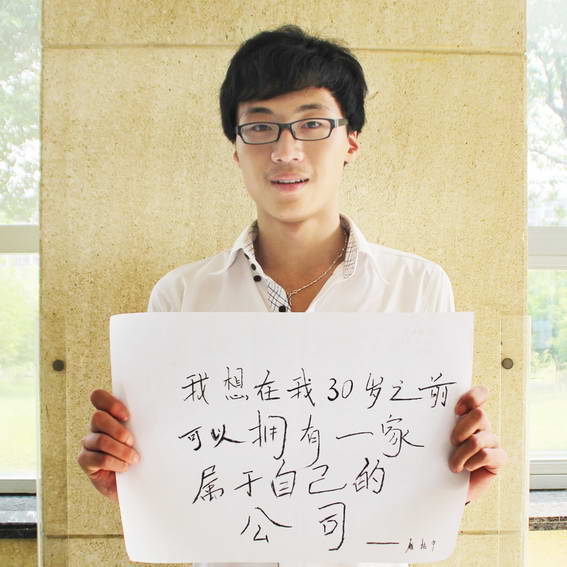 我想在我30岁之前
可以拥有一家
属于自己的
公司——